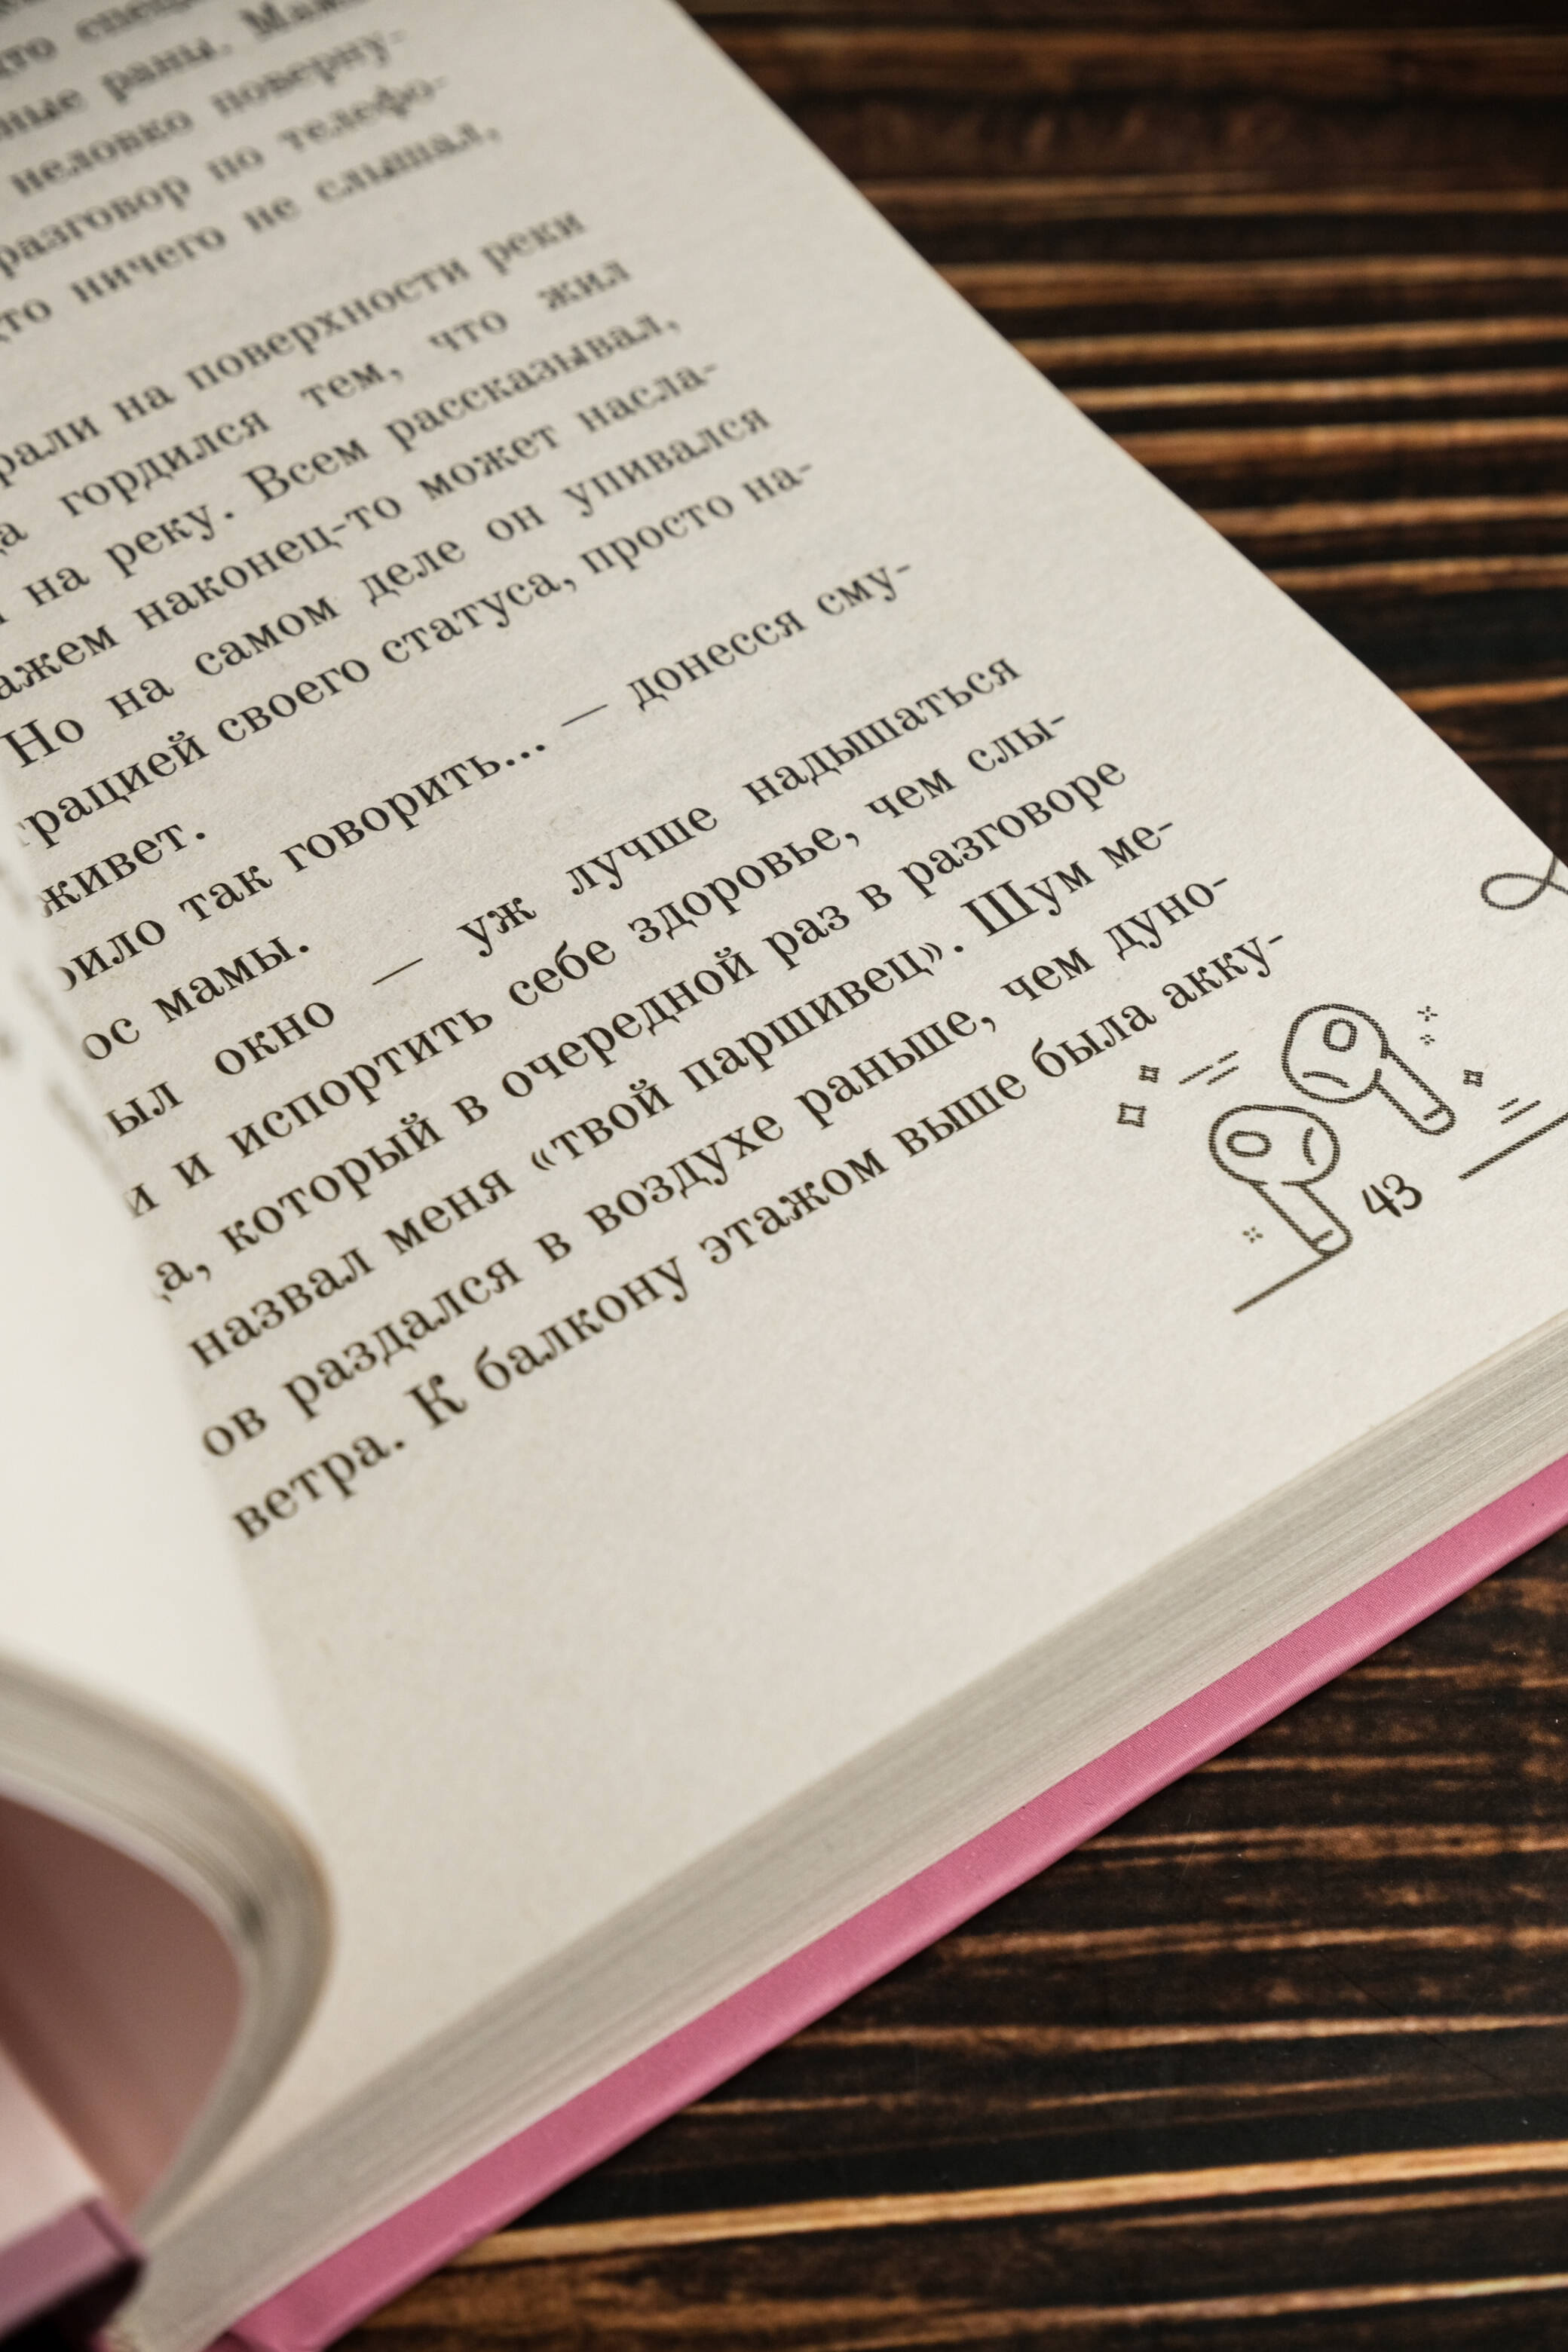 раны.
неловко поверну-
разговор по телефо-
ничего не слышал,
на поверхности реки
гордился тем, что жил
на реку. Всем рассказывал,
наконец-то может насла-
Но на самом деле он упивался
своего статуса, просто на-
живет.
так говорить... — донесся сму-
мамы.
окно — уж лучше надышаться
и испортить себе здоровье, чем слы-
который в очередной раз в разговоре
назвал меня «твой паршивец». Шум ме-
раздался в воздухе раньше, чем дуно-
ветра. К балкону этажом выше была акку-
43